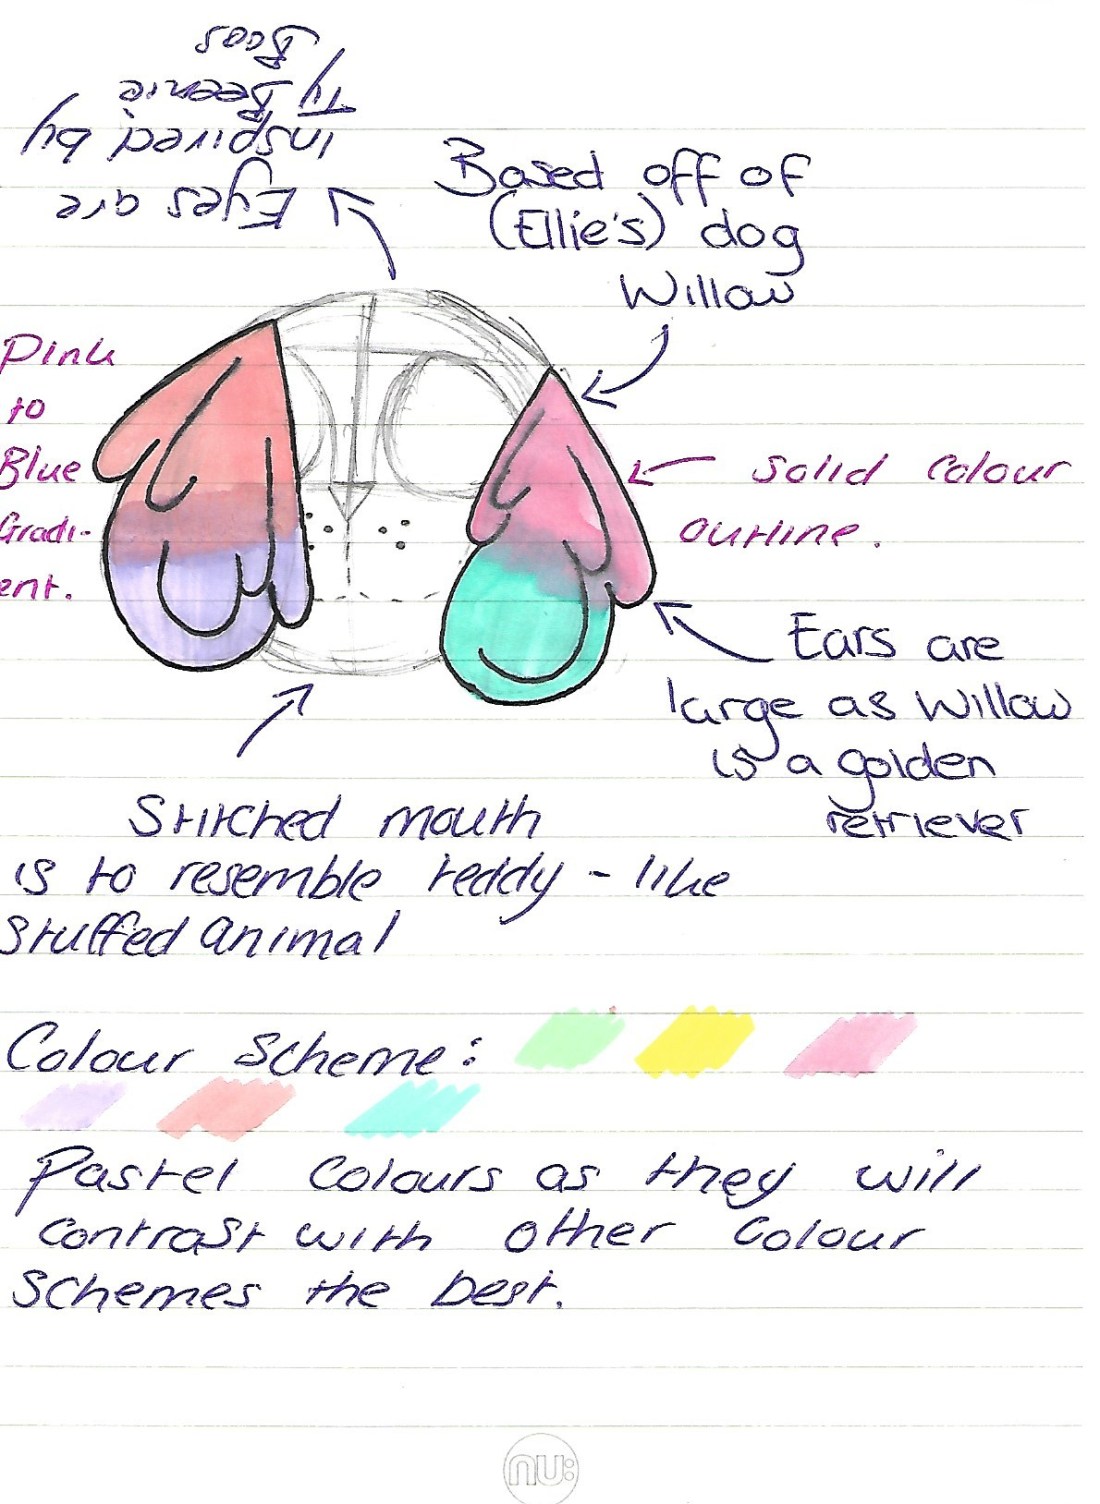 Eyes are
inspired by
Ty Beenie
Boos
Based off of
(Ellie's) dog
Willow
Pink
to
Blue
Gradi-
ent.
Solid Colour
outline.
Ears are
large as Willow
is a golden
retriever
Stitched mouth
is to resemble teddy - like
Stuffed animal
Colour Scheme:
Pastel Colours as they will
contrast with other Colour
Schemes the best.
nu: